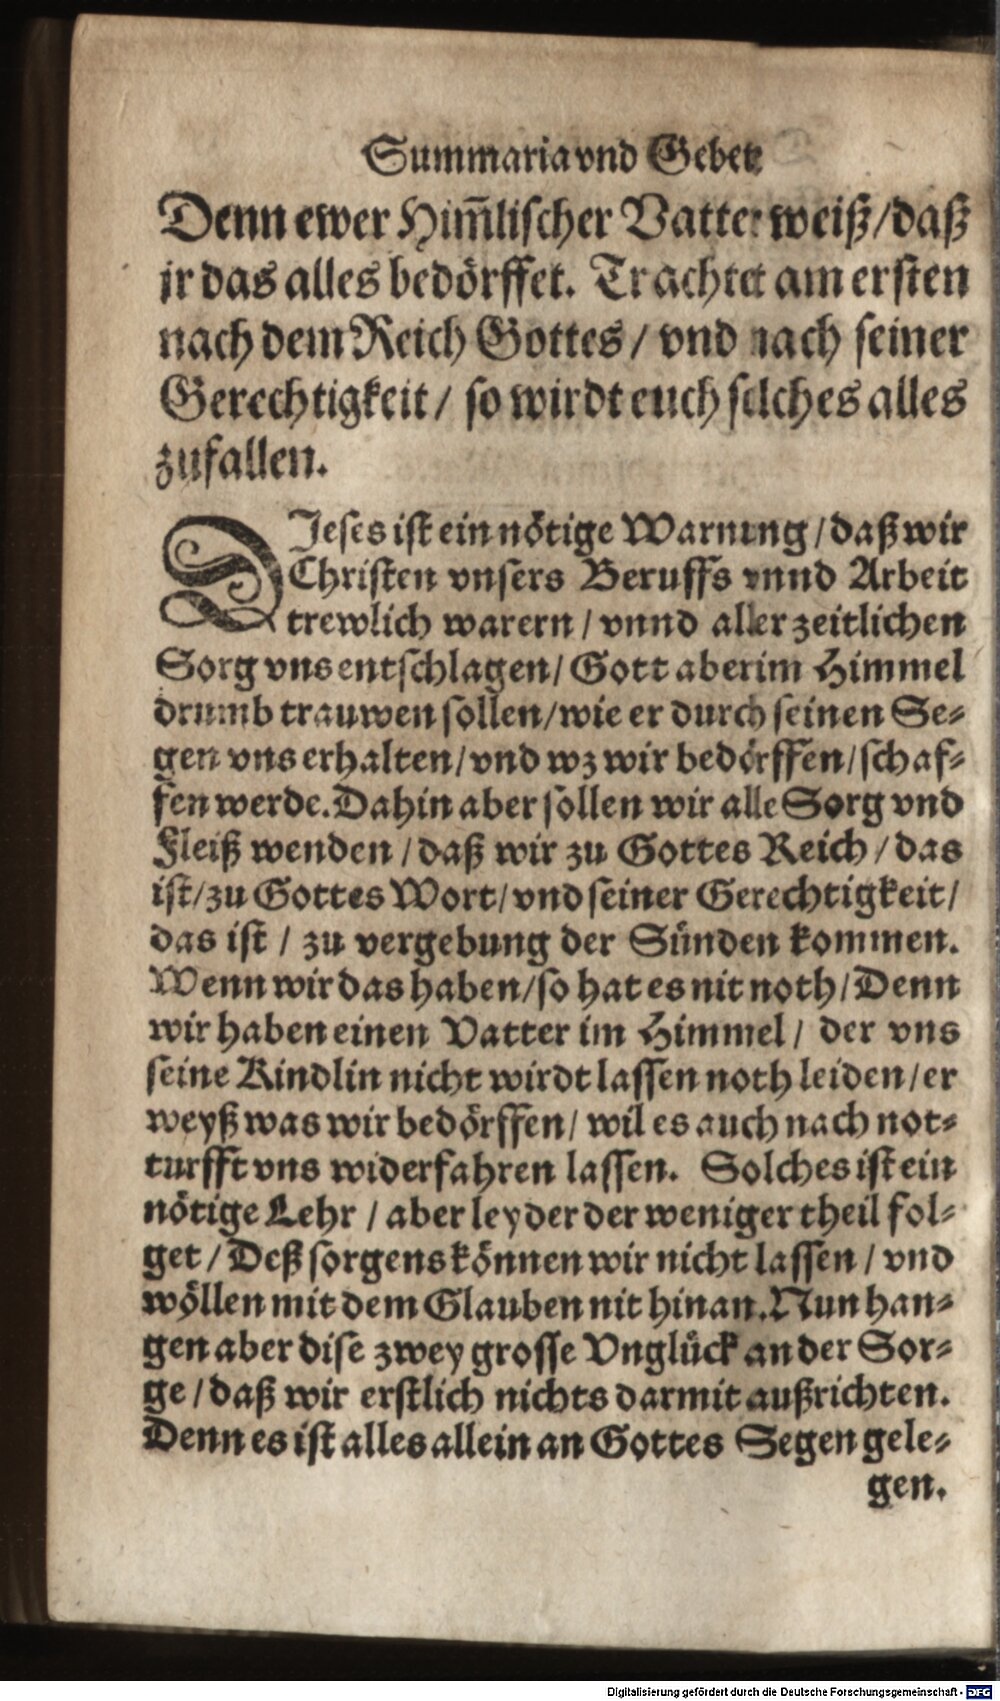 Summaria vnd Gebet
Denn ewer Him̄lischer Vatter weiß/daß
jr das alles bedörffet. Trachtet am ersten
nach dem Reich Gottes/ vnd nach seiner
Gerechtigkeit/ so wirdt euch solches alles
zufallen.
DJeses ist ein nötige Warnung/daß wir
Christen vnsers Beruffs vnnd Arbeit
trewlich warern/ vnnd aller zeitlichen
Sorg vns entschlagen/ Gott aber im Himmel
drumb trauwen sollen/wie er durch seinen Se⸗
gen vns erhalten/vnd wz wir bedörffen/schaf⸗
fen werde. Dahin aber sollen wir alle Sorg vnd
Fleiß wenden/daß wir zu Gottes Reich/das
ist/zu Gottes Wort/vnd seiner Gerechtigkeit/
das ist/ zu vergebung der Sünden kommen.
Wenn wir das haben/so hat es nit noth/Denn
wir haben einen Vatter im Himmel/ der vns
seine Kindlin nicht wirdt lassen noth leiden/er
weyß was wir bedörffen/ wil es auch nach not⸗
turfft vns widerfahren lassen. Solches ist ein
nötige Lehr/ aber leyder der weniger theil fol⸗
get/Deß sorgens können wir nicht lassen/ vnd
wöllen mit dem Glauben nit hinan. Nun han⸗
gen aber dise zwey grosse Vnglück an der Sor⸗
ge/daß wir erstlich nichts darmit außrichten.
Denn es ist alles allein an Gottes Segen gele⸗
gen.
Digitalisierung gefördert durch die Deutsche Forschungsgemeinschaft - DFG